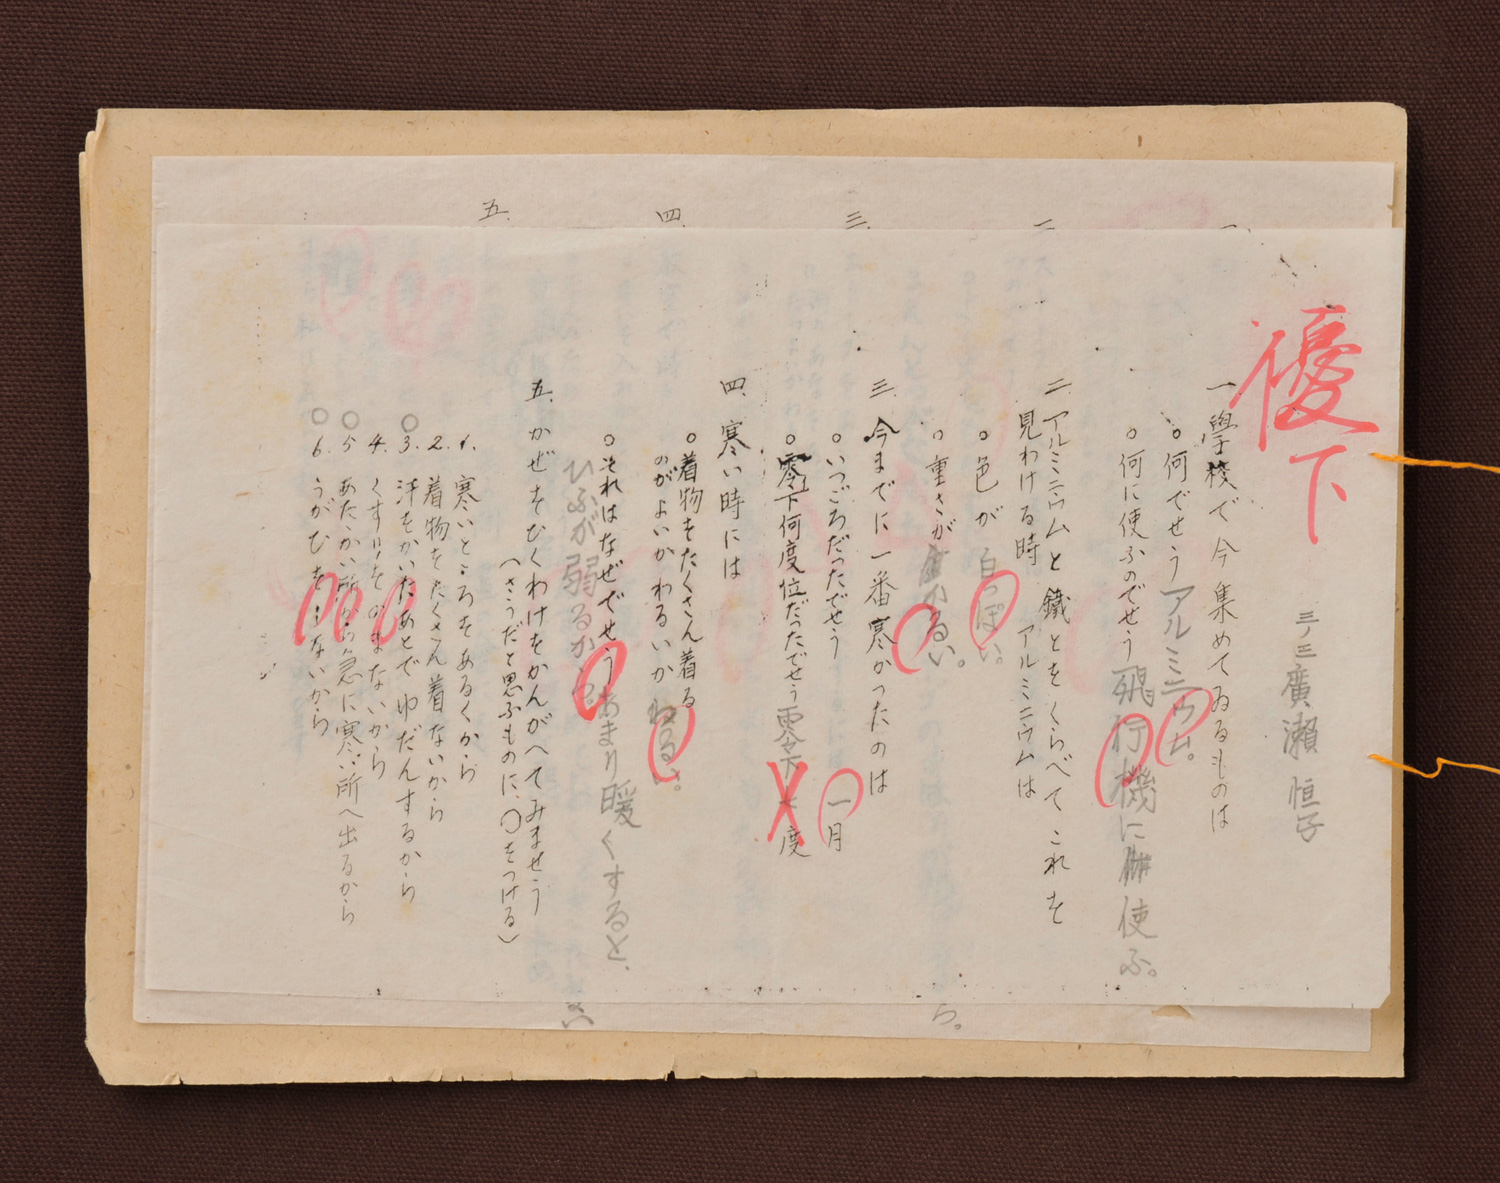 優下
三ノ三 廣瀬恒子
一、學校で今集めてゐるものは
○何でせう アルミニウム。
○何に使ふのでせう 飛行機に使ふ。
二、アルミニウムと鐵とをくらべてこれを
見わける時 アルミニウムは
○色が 白っぽい。
○重さが かるい。
三、今までに一番寒かったのは
○いつごろだったでせう 一月
○零下何度位だったでせう 零下七度
四、寒い時には
○着物をたくさん着る
のがよいかわるいか わるい。
○それはなぜでせう あまり暖くすると、
ひふが弱るから。
五、かぜをひくわけをかんがへてみませう
(さうだと思ふものに、○をつける)
1. 寒いところをあるくから
2. 着物をたくさん着ないから
○3. 汗をかいたあとでゆだんするから
4. くすりをのまないから
○5. あたたかい所から急に寒い所へ出るから
○6. うがひをしないから
一
二
三
四
五
ら。